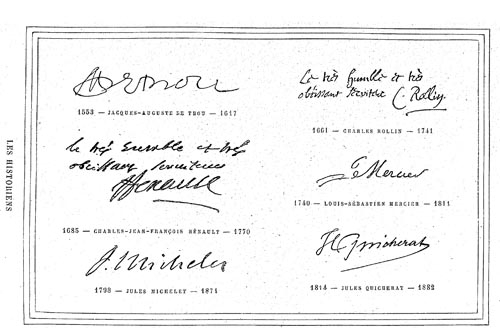 LES HISTORIENS
1553 — JACQUES-AUGUSTE DE THOU — 1617
le très humble et très
obéissant serviteur
Henault
1685 — CHARLES-JEAN-FRANÇOIS HÉNAULT — 1770
J. Michelet
1798 — JULES MICHELET — 1874
Le très humble et très
obéissant serviteur C. Rollin
1661 — CHARLES ROLLIN — 1741
Mercier
1740 — LOUIS-SÉBASTIEN MERCIER — 1814
J Quicherat
1814 — JULES QUICHERAT — 1882